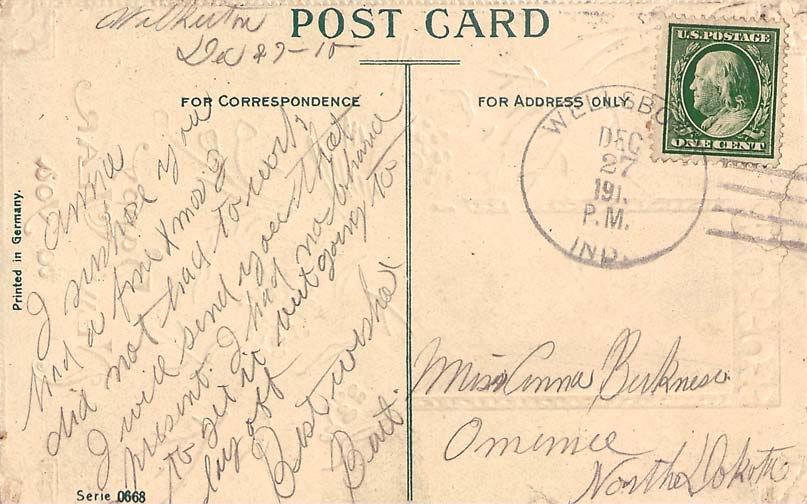 Walkerton
Dec 27-10
POST CARD
FOR CORRESPONDENCE
Anna
I suppose you
had a fine Xmas I
did not had to work
I will send you that
present. I had no chance
to get it but going to
lay off
Best wishes
Bert.
Printed in Germany.
Serie 0668
FOR ADDRESS ONLY
U.S. POSTAGE
ONE CENT
WELLSBO
DEC
27
191
P.M.
IND.
Miss Anna
Omemee
North Dakota